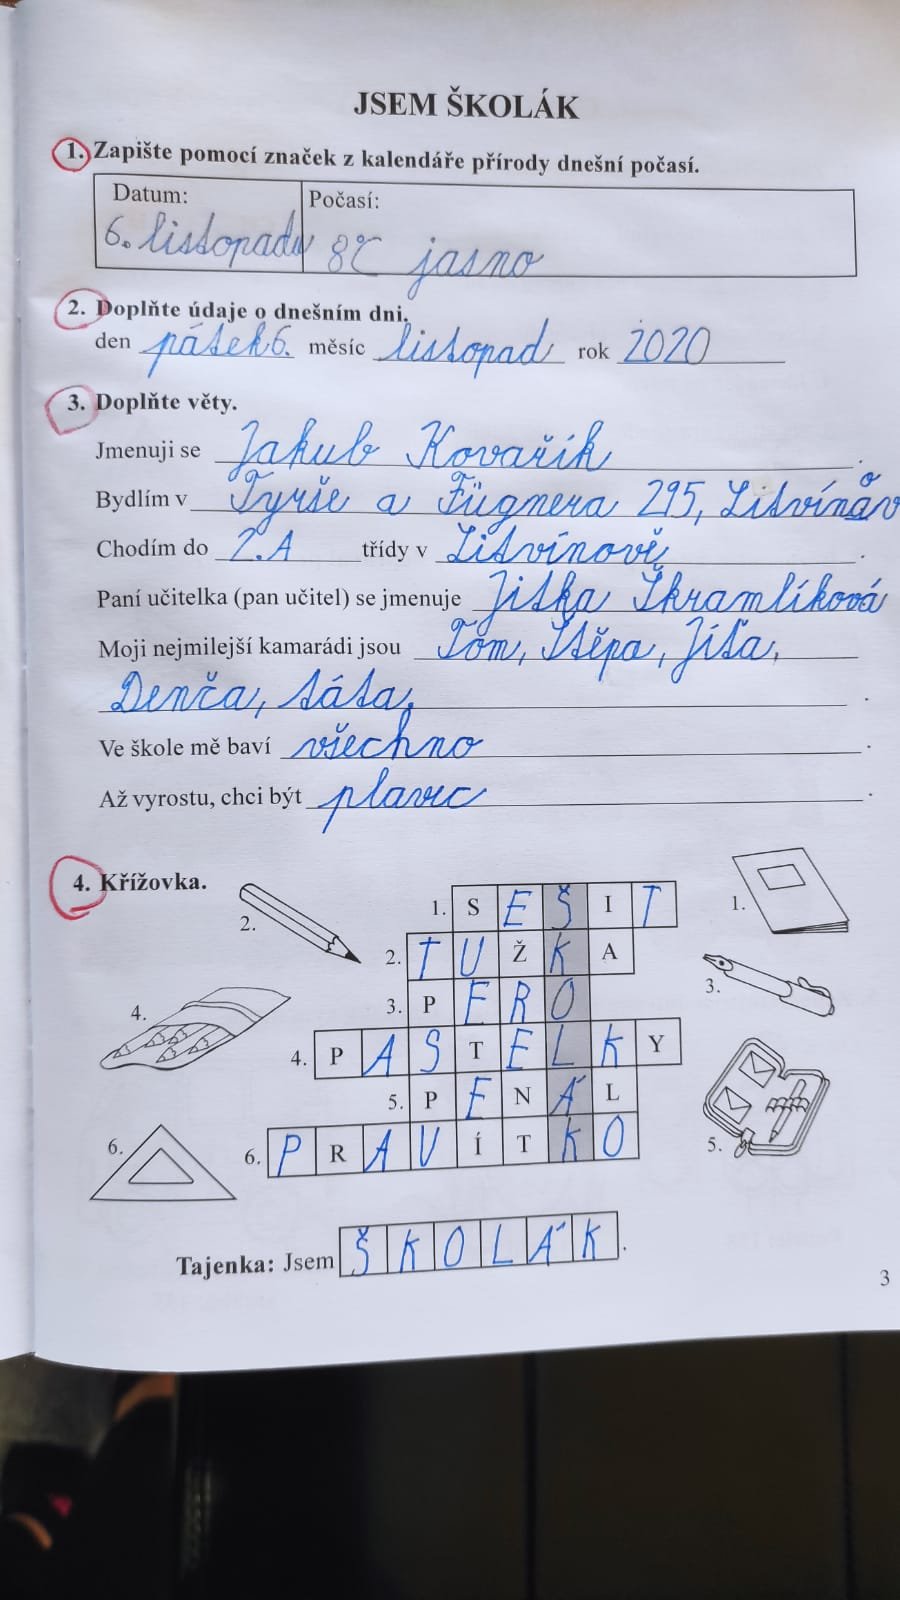 JSEM ŠKOLÁK
1. Zapište pomocí značek z kalendáře přírody dnešní počasí.
Datum: Počasí:
6. listopadu 8°C jasno
2. Doplňte údaje o dnešním dni.
den pátek 6. měsíc listopad rok 2020
3. Doplňte věty.
Jmenuji se Jakub Kovařík.
Bydlím v Tyrše a Fügnera 295, Litvínov
Chodím do 2.A třídy v Litvínově.
Paní učitelka (pan učitel) se jmenuje Jitka Škramlíková
Moji nejmilejší kamarádi jsou Tom, Štěpa, Jíťa,
Denča, táta.
Ve škole mě baví všechno.
Až vyrostu, chci být plavec.
4. Křížovka.
1. SEŠIT 1.
2. 2. TUŽKA
3. PERO 3.
4. 4. PASTELKY
5. PENÁL 5.
6. 6. PRAVÍTKO
Tajenka: Jsem ŠKOLÁK.
3